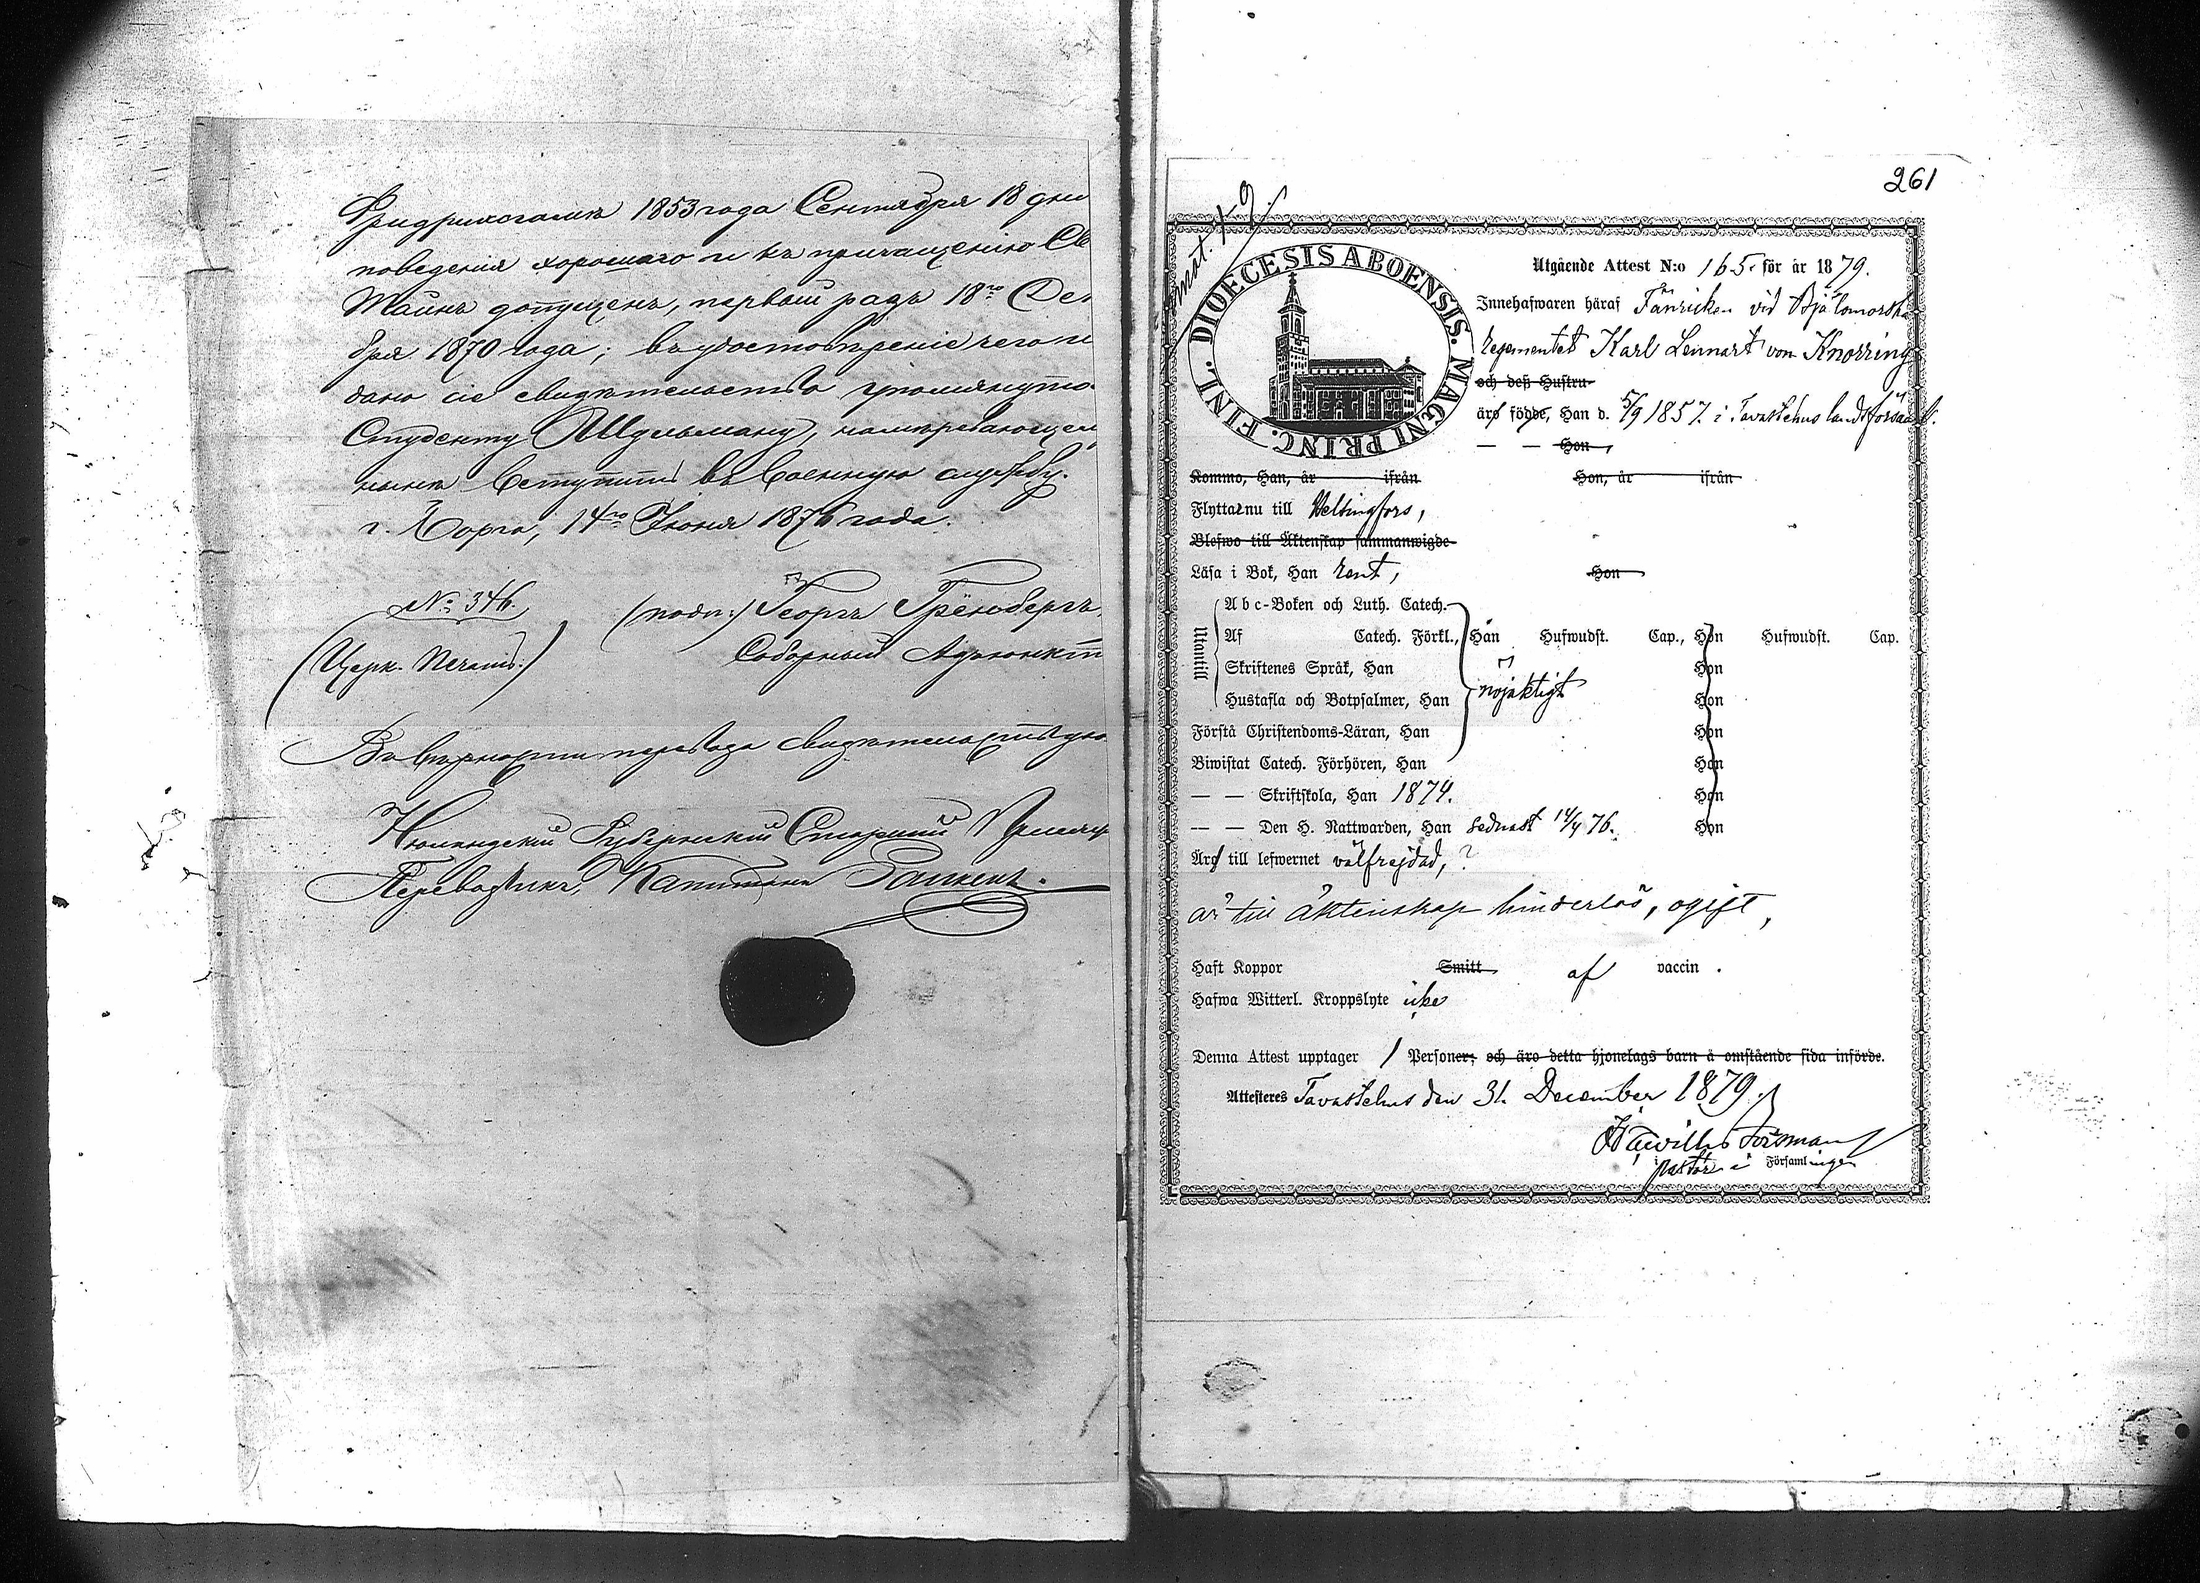 Фридрихсгамѣ 1853 года Сентября 18 дня
поведенія хорошаго и къ причащенію Св
Таинъ допущенъ, первый разъ 18го Дек
бря 1870 года; въ удостовѣреніе чего и
дано сіе свидѣтельство упомянуто
Студенту Идельману, намѣревающем
нынѣ вступить въ военную службу.
г. Борго, 14го Іюня 1876 года.
№ 346. (подп:) Георгъ Грёнбергъ,
(Церк. Печать.) Соборный Адъюнктъ
Въ вѣрности перевода свидѣтельствую
Нюландскій Губернскій Старшій
Переводчикъ, Капитанъ
261
DIOECESIS ABOENSIS. MAGNI PRINC. FINL.
Utgående Attest N:o 165 för år 1879.
Innehafwaren häraf Fänriken vid Bjälomorska
regementet Karl Lennart von Knorring
och deß Hustru
äro födde, Han d. 5/9 1857. i Tavastehus landsförsaml.
— — Hon
Kommo, Han, år ifrån Hon, år ifrån
Flytta nu till Helsingfors,
Blefwo till Äktenskap sammanwigde
Läsa i Bok, Han rent, Hon
Utantill
Abc-Boken och Luth. Catech.
Af Catech. Förkl., Han Hufwudst. Cap., Hon Hufwudst. Cap.
Skriftenes Språk, Han Hon
nöjaktigt
Hustafla och Botpsalmer, Han Hon
Förstå Christendoms-Läran, Han Hon
Biwistat Catech. Förhören, Han Hon
— — Skriftskola, Han 1874. Hon
— — Den H. Nattwarden, Han sednast 14/4 76. Hon
Äro till lefwernet välfrejdad,
är till äktenskap hinderlös, ogift,
Haft Koppor Smitt af vaccin.
Hafwa Witterl. Kroppslyte icke
Denna Attest upptager 1 Personer; och äro detta hjonelags barn å omstående sida införde.
Attesteras Tavastehus den 31. December 1879.
Forsman
pastor i Församlingen